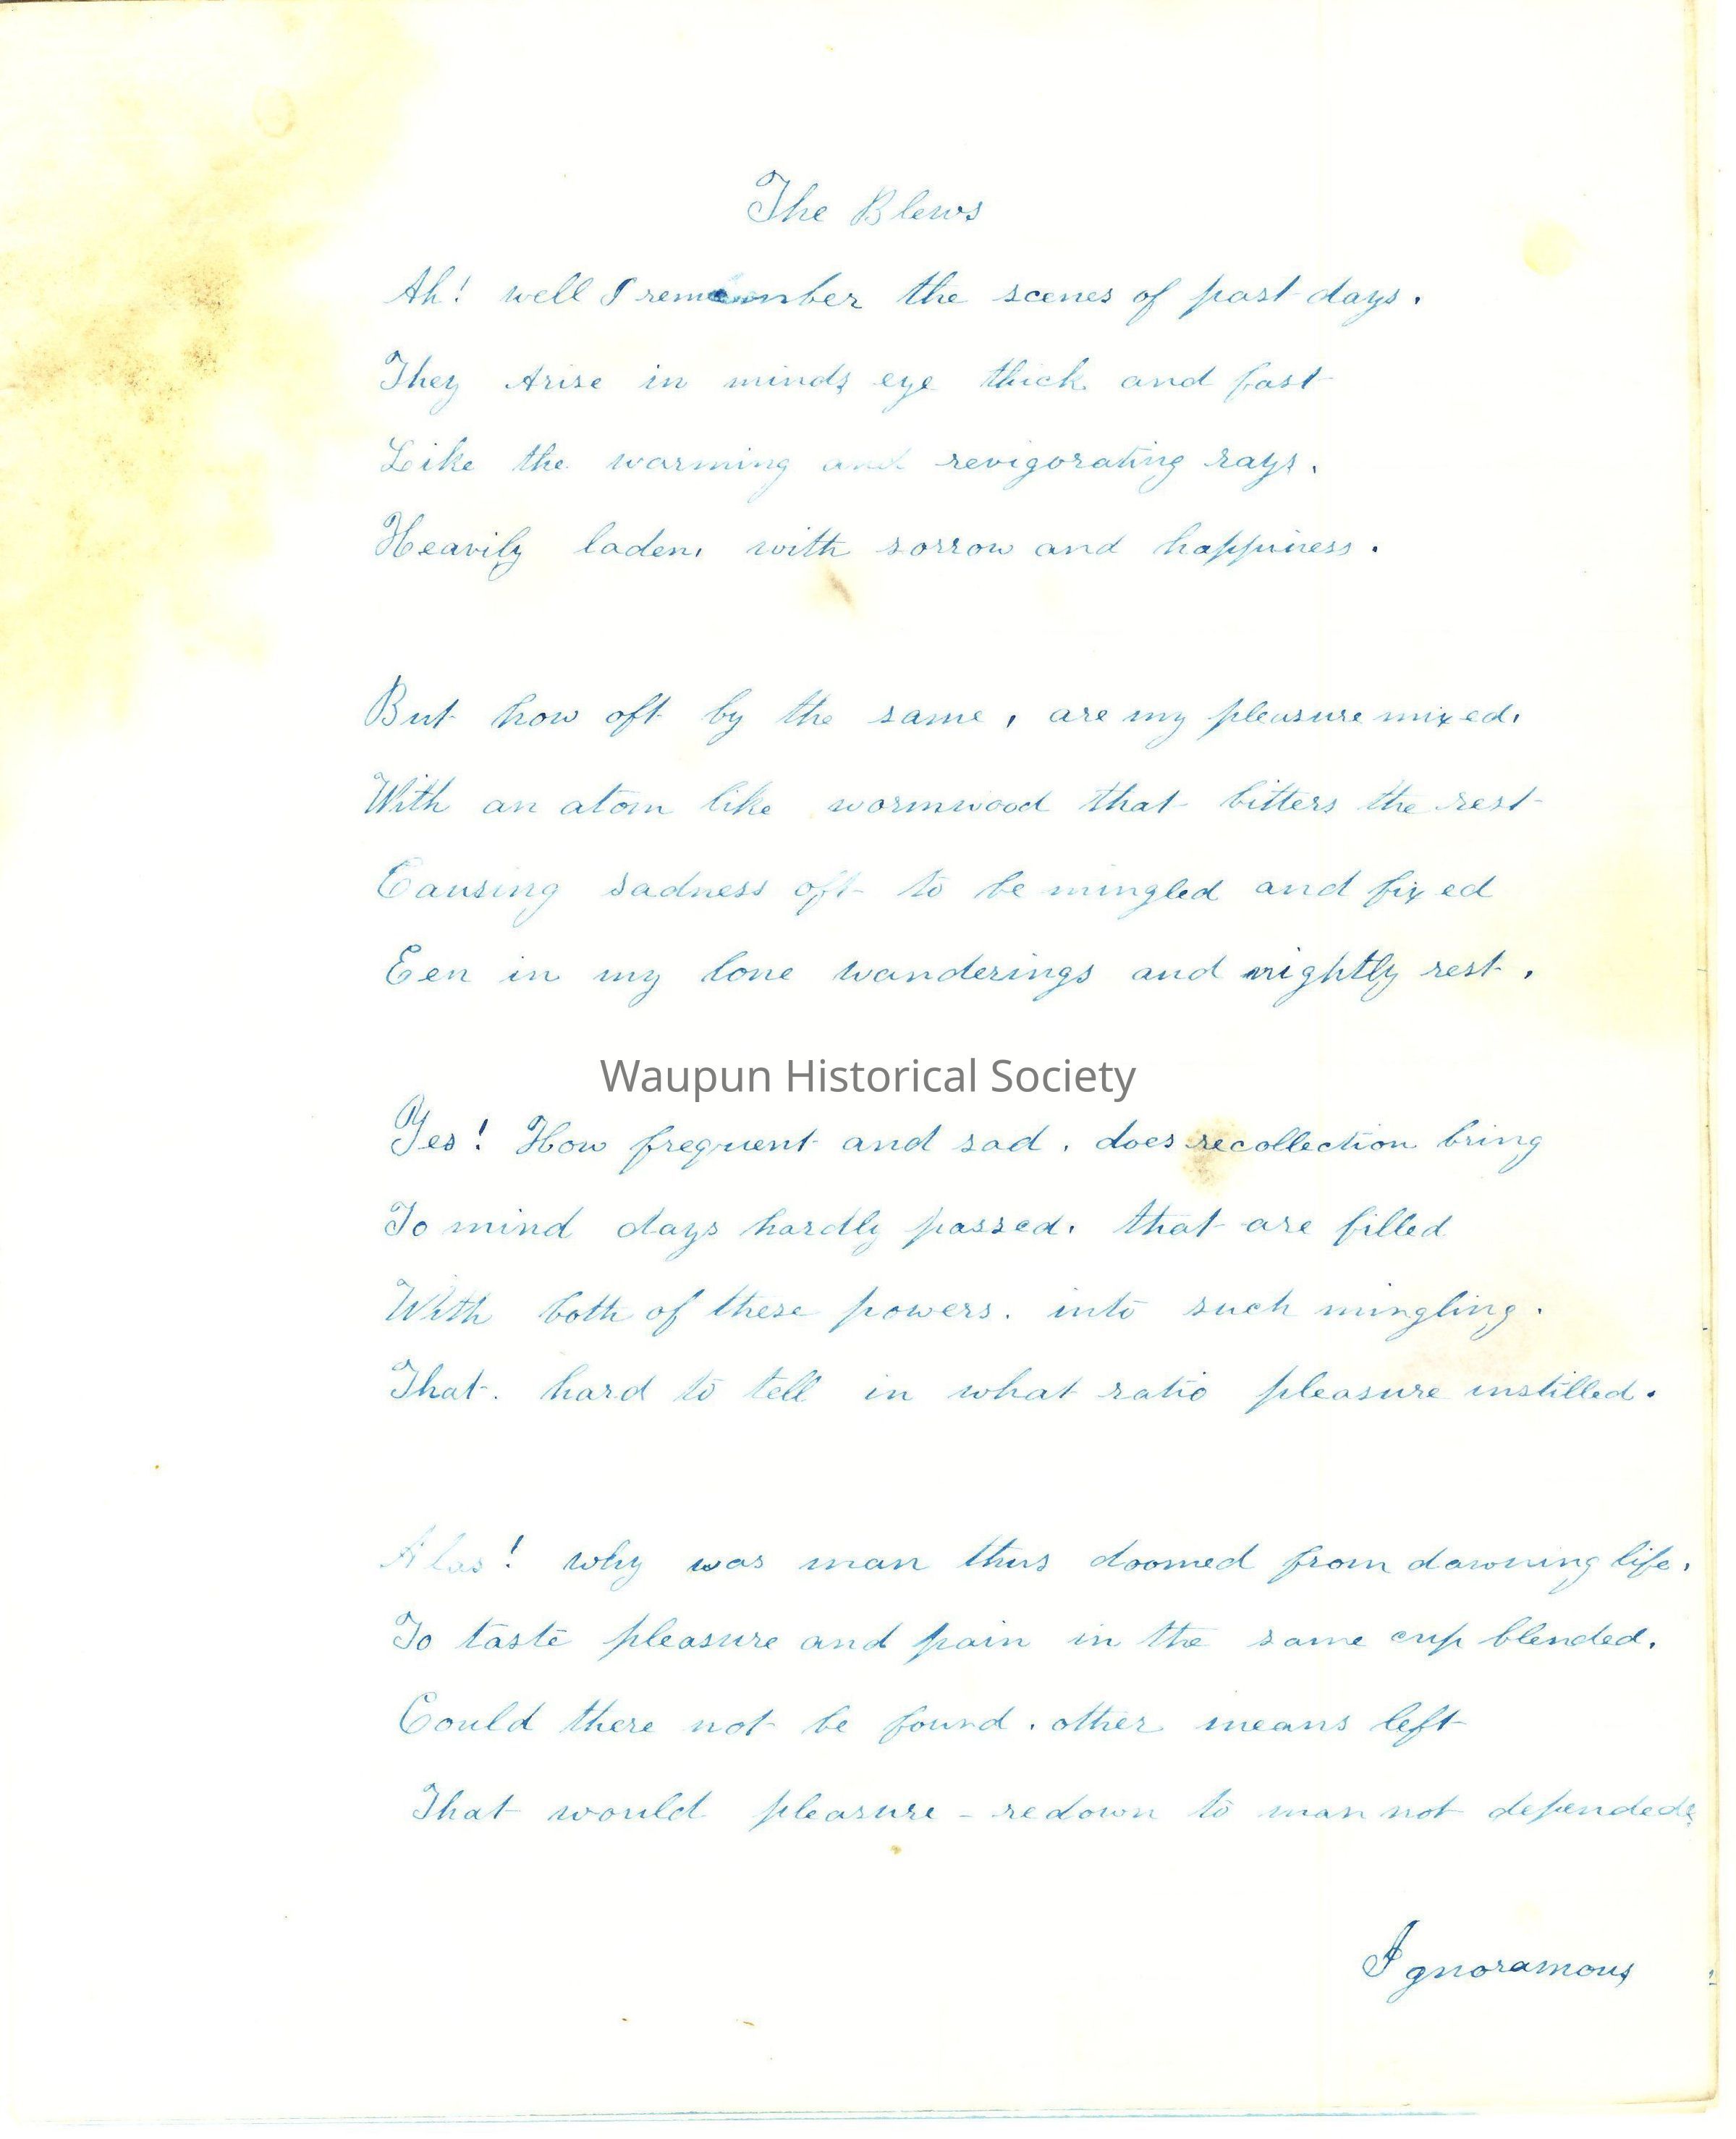 The Blews
Ah! well I remember the scenes of past days.
They Arise in minds eye thick and fast
Like the warming and revigorating rays.
Heavily laden, with sorrow and happiness.
But how oft by the same, are my pleasure mixed,
With an atom like wormwood that bitters the rest
Causing sadness oft to be mingled and fixed
Een in my lone wanderings and nightly rest.
Waupun Historical Society
Yes! How frequent and sad, does recollection bring
To mind days hardly passed, that are filled
With both of these powers. into such mingling.
That. hard to tell in what ratio pleasure instilled.
Alas! why was man thus doomed from dawning life,
To taste pleasure and pain in the same cup blended,
Could there not be found, other means left
That would pleasure - redown to man not depended
Ignoramous